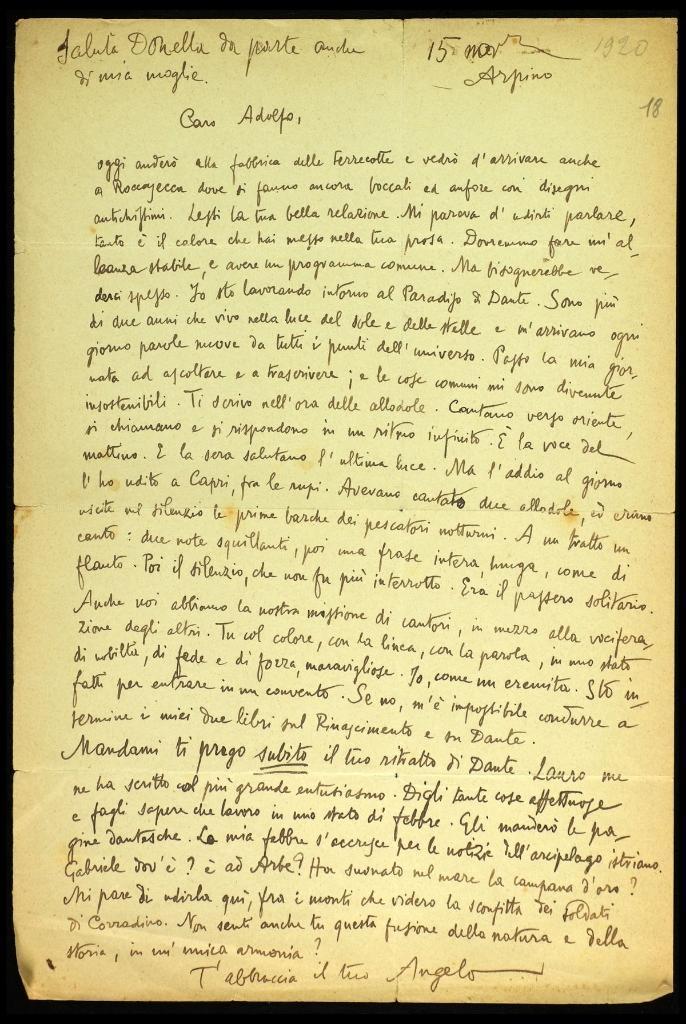 Saluta Donella da parte anche
di mia moglie.
15 nov
1920
Arpino
18
Caro Adolfo,
oggi anderò alla fabbrica delle Terrecotte e vedrò d'arrivare anche
a Roccasecca dove si fanno ancora boccali ed anfore con disegni
antichissimi. Lessi la tua bella relazione. Mi pareva d'udirti parlare,
tanto è il calore che hai messo nella tua prosa. Dovremmo fare un'al-
leanza stabile, e avere un programma comune. Ma bisognerebbe ve-
derci spesso. Io sto lavorando intorno al Paradiso di Dante. Sono più
di due anni che vivo nella luce del sole e delle stelle e m'arrivano ogni
giorno parole nuove da tutti i punti dell'universo. Passo la mia gior-
nata ad ascoltare e a trascrivere; e le cose comuni mi sono divenute
insostenibili. Ti scrivo nell'ora delle allodole. Cantano verso oriente,
si chiamano e si rispondono in un ritmo infinito. È la voce del
mattino. E la sera salutano l'ultima luce. Ma l'addio al giorno
l'ho udito a Capri, fra le rupi. Avevano cantato due allodole, ed erano
uscite nel silenzio le prime barche dei pescatori notturni. A un tratto un
canto: due note squillanti, poi una frase intera, lunga, come di
flauto. Poi il silenzio, che non fu più interrotto. Era il passero solitario.
Anche noi abbiamo la nostra missione di cantori, in mezzo alla vocifera-
zione degli altri. Tu col colore, con la linea, con la parola, in uno stato
di nobiltà, di fede e di forza, maravigliose. Io, come un eremita. Sto in-
fatti per entrare in un convento. Se no, m'è impossibile condurre a
termine i miei due libri sul Rinascimento e su Dante.
Mandami ti prego subito il tuo ritratto di Dante. Lauro me
ne ha scritto col più grande entusiasmo. Digli tante cose affettuose
e fagli sapere che lavoro in uno stato di febbre. Gli manderò le pa-
gine dantesche. La mia febbre s'accresce per le notizie dell'arcipelago istriano.
Gabriele dov'è? è ad Arbe? Ha suonato nel mare la campana d'oro?
Mi pare di udirla qui, fra i monti che videro la sconfitta dei soldati
di Corradino. Non senti anche tu questa fusione della natura e della
storia, in un'unica armonia?
T'abbraccia il tuo Angelo